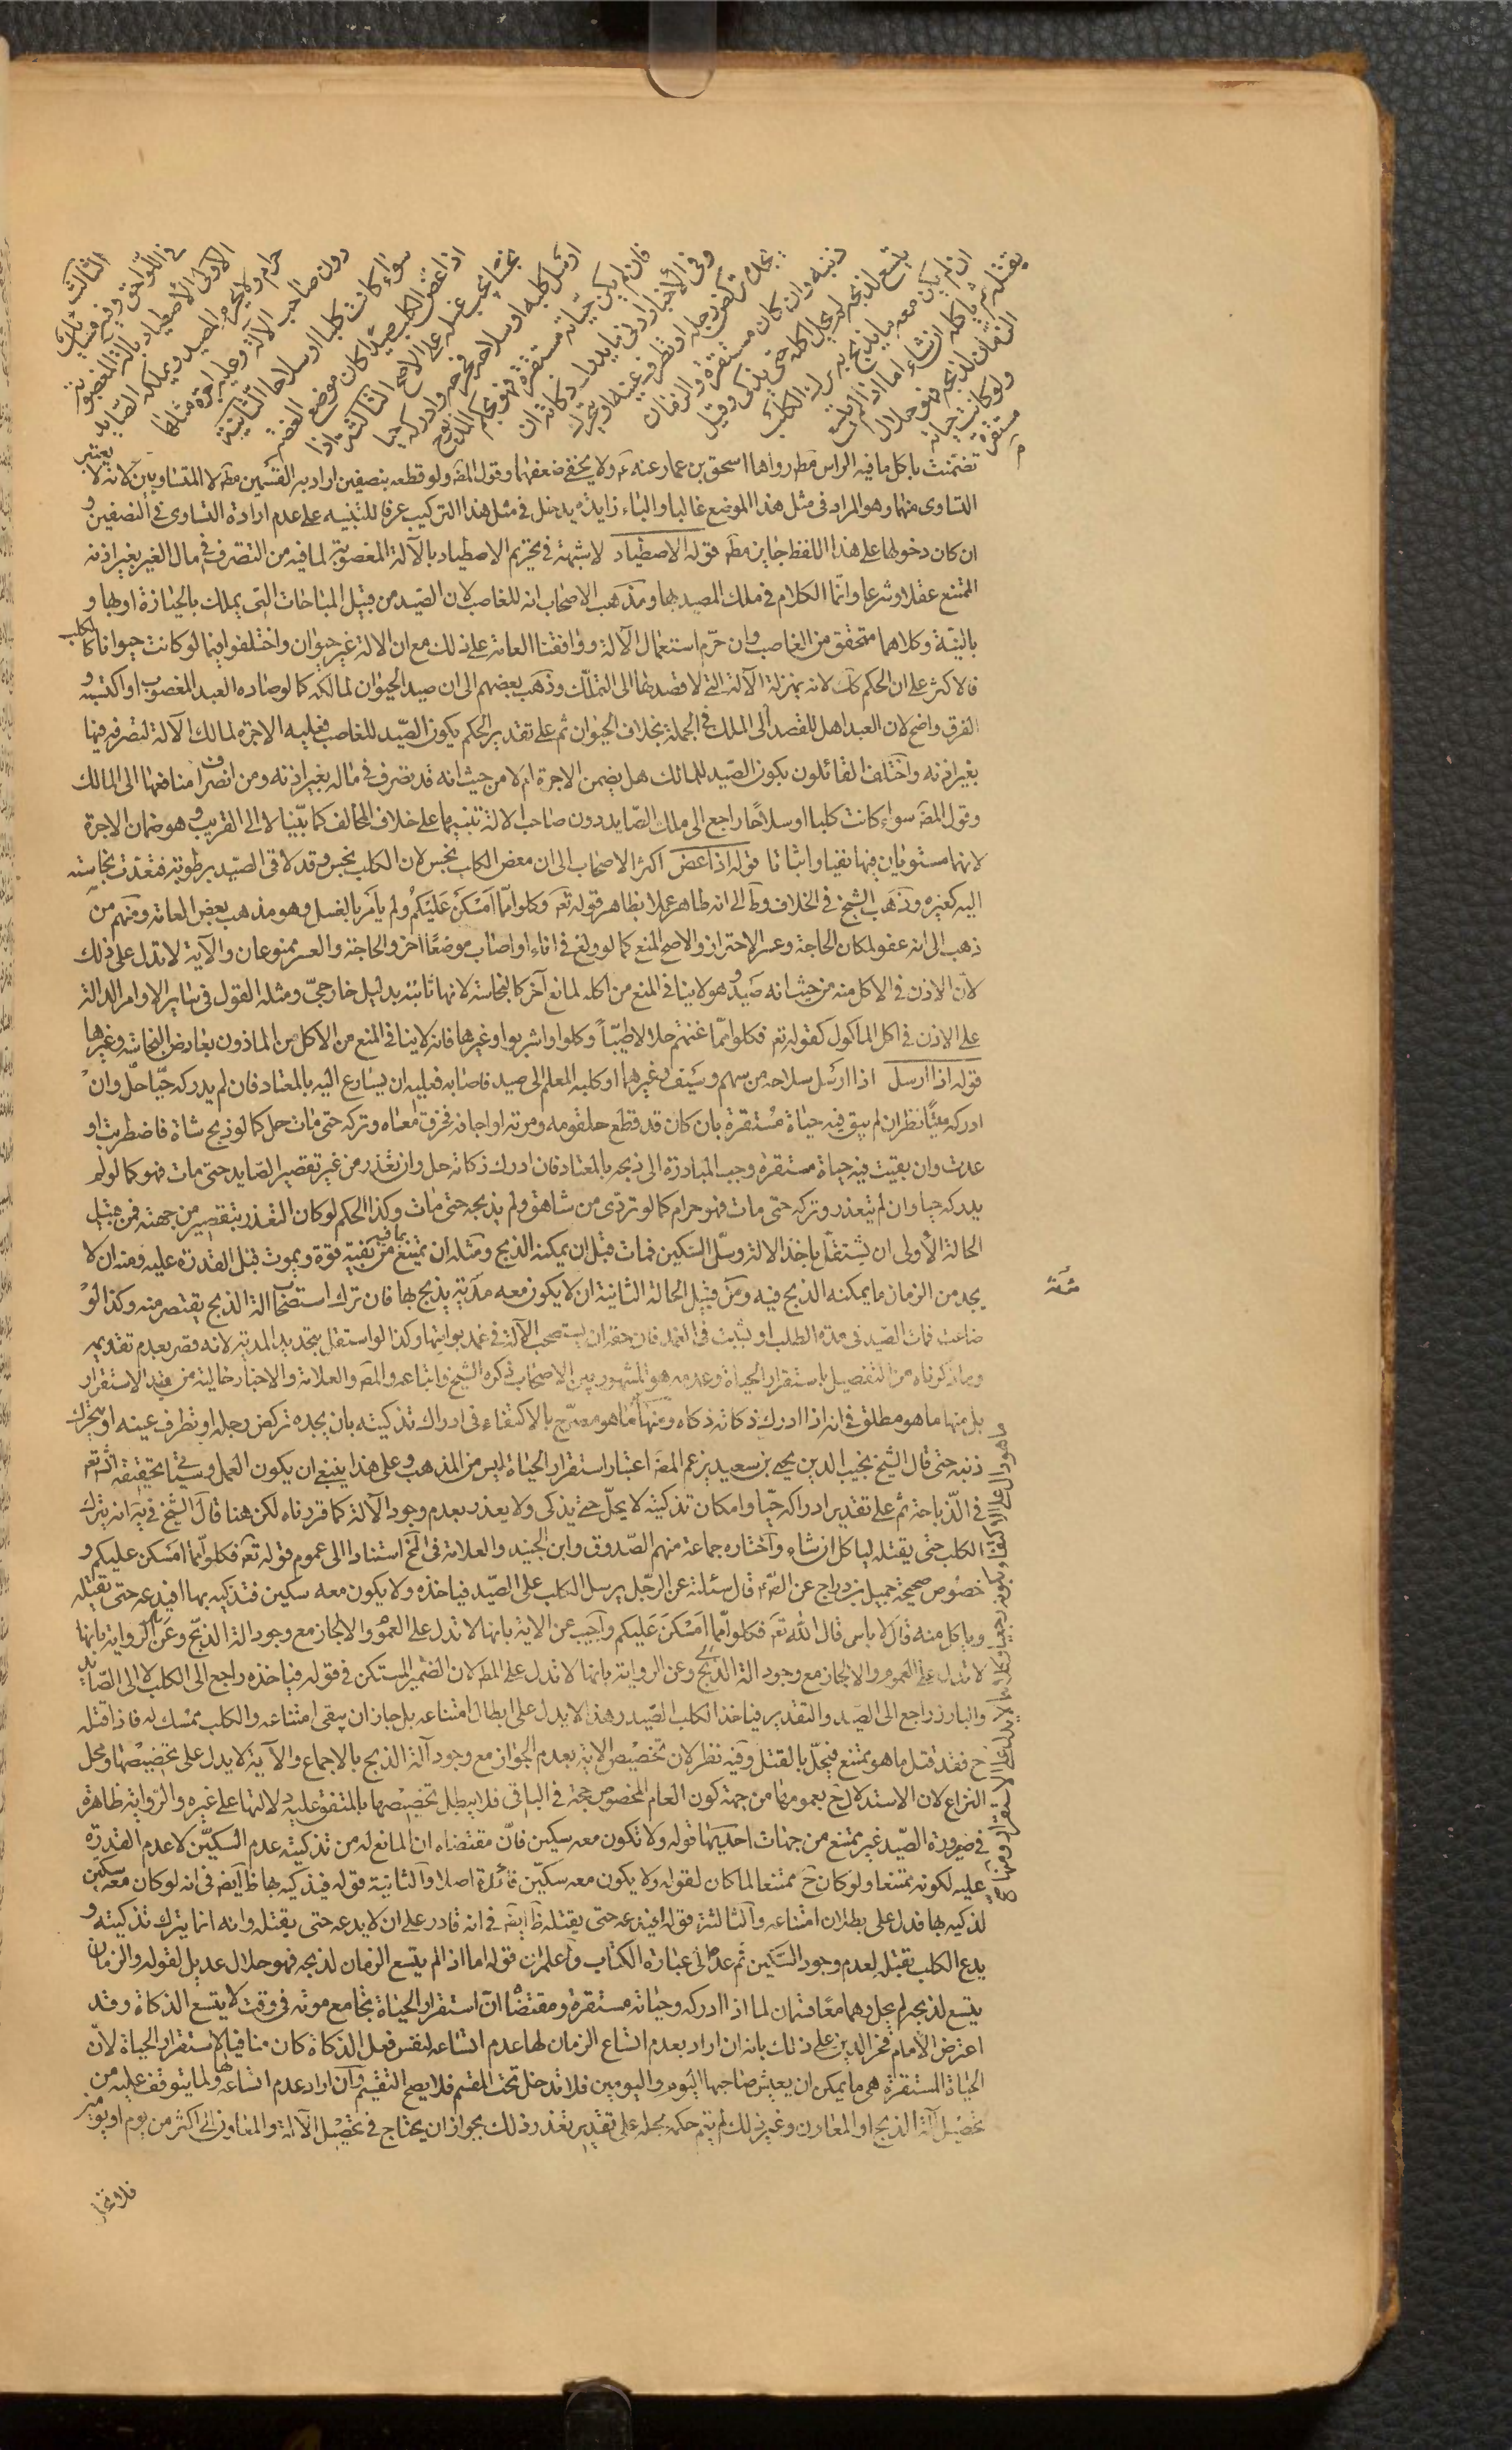 الثالث
في اللواحق وفيه مسائل
الاولى الاصطياد بالآلة المغصوبة
حرام ولا يحرم الصيد ويملكه الصايد
دون صاحب الآلة وعليه اجرة مثلها
سواء كانت كلبا او سلاحا الثانية
اذا عض الكلب صيدا كان موضع العضة
نجسا يجب غسله على الاصح الثالثة اذا
ارسل كلبه او سلاحه فجرحه وادركه حيا
فان لم يكن حياته مستقرة فهو بحكم المذبوح
وفي الأخبار ادنى ما يدرك ذكاته ان
يجده تركض رجله او تطرف عينه او يتحرك
ذنبه وان كان مستقرة والزمان
يتسع لذبحه لم يحل اكله حتى يذكى وقيل
ان لم يكن معه ما يذبح به ترك الكلب
يقتله ثم ياكله ان شاء اما اذا لم يتسع
الزمان لذبحه فهو حلال
ولو كانت حياته
مستقرة
تضمنت باكل ما فيه الراس مطم رواها اسحق بن عمار عنه عم ولا يخفى ضعفها وقول المصه ولو قطعه بنصفين اراد به القسمين مطم لا المتساويين لانه لا يعتبر
التساوى منها وهو المراد في مثل هذا الموضع غالبا والباء زايدة يدخل في مثل هذا التركيب عرفا للتنبيه على عدم ارادة التساوى في النصفين و
ان كان دخولها على هذا اللفظ جايز مطم قوله الاصطياد لا شبهة في تحريم الاصطياد بالآلة المغصوبة لما فيه من التصرف في مال الغير بغير اذنه
الممتنع عقلا وشرعا وانما الكلام في ملك المصيد بها ومذهب الاصحاب انه للغاصب لان الصيد من قبيل المباحات التي يملك بالحيازة او بها و
بالنية وكلاهما متحقق من الغاصب وان حرم استعمال الآلة ووافقنا العامة على ذلك مع ان الالة غير حيوان واختلفوا فيما لو كانت حيوانا كالكلب
فالاكثر على ان الحكم كك لانه بمنزلة الآلة التي لا قصد لها الى التملك وذهب بعضهم الى ان صيد الحيوان لمالكه كما لو صاده العبد المغصوب او اكتسبه و
الفرق واضح لان العبد اهل للقصد الى الملك في الجملة بخلاف الحيوان ثم على تقدير الحكم بكون الصيد للغاصب فعليه الاجرة لمالك الآلة لتصرفه فيها
بغير اذنه واختلف القائلون بكون الصيد للمالك هل يضمن الاجرة ام لا من حيث انه قد تصرف في ماله بغير اذنه ومن انصراف منافعها الى المالك
وقول المصه سواء كانت كلبا او سلاحا راجع الى ملك الصايد دون صاحب الالة تنبيها على خلاف المخالف كما بينا لا الى القريب وهو ضمان الاجرة
لانهما مستويان فيها نفيا واثباتا قوله اذا عض اكثر الاصحاب الى ان معض الكلب نجس لان الكلب نجس وقد لاقى الصيد برطوبة فتعدت نجاسته
اليه كغيره وذهب الشيخ في الخلاف وط الى انه طاهر عملا بظاهر قوله تعم وكلوا مما امسكن عليكم ولم يامر بالغسل وهو مذهب بعض العامة ومنهم من
ذهب الى انه عفو لمكان الحاجة وعسر الاحتراز والاصح المنع كما لو ولغ في اناء او اصاب موضعا اخر والحاجة والعسر ممنوعان والآية لا تدل على ذلك
لان الاذن في الاكل منه من حيث انه صيد وهو لا ينافي المنع من اكله لمانع آخر كالنجاسة لانها ثابتة بدليل خارجي ومثله القول في ساير الاوامر الدالة
على الاذن في اكل الماكول كقوله تعم فكلوا مما غنمتم حلالا طيبا وكلوا واشربوا وغيرها فانه لا ينافي المنع من الاكل من الماذون بعارض النجاسة وغيرها
قوله اذا ارسل اذا ارسل سلاحه من سهم وسيف وغيرهما او كلبه المعلم الى صيد فاصابه فعليه ان يسارع اليه بالمعتاد فان لم يدركه حيا حل وان
ادركه حيا نظر ان لم يبق فيه حياة مستقرة بان كان قد قطع حلقومه ومريه او اجافه فخرق امعاه وتركه حتى مات حل كما لو ذبح شاة فاضطربت او
عدت وان بقيت فيه حياة مستقرة وجب المبادرة الى ذبحه بالمعتاد فان ادرك ذكاته حل وان تعذر من غير تقصير الصايد حتى مات فهو كما لو لم
يدركه حيا وان لم يتعذر وتركه حتى مات فهو حرام كما لو تردى من شاهق ولم يذبحه حتى مات وكذا الحكم لو كان التعذر بتقصير من جهته فمن قبيل
الحالة الأولى ان يشتغل باخذ الالة وسل السكين فمات قبل ان يمكنه الذبح ومثله ان يمتنع بما فيه من بقية قوة ويموت قبل القدرة عليه ومنه ان لا
يجد من الزمان ما يمكنه الذبح فيه ومن قبيل الحالة الثانية ان لا يكون معه مدية يذبح بها فان ترك استصحاب الة الذبح يقتصر منه وكذا لو
ضاعت فمات الصيد في مدة الطلب او نشبت في الغمد فان حقه ان يستصحب الآلة في غمد يواتيها وكذا لو اشتغل بتحديد المدية لانه قصر بعدم تقديمه
وما ذكرناه من التفصيل باستقرار الحياة وعدمه هو المشهور بين الاصحاب ذكره الشيخ واتباعه والمصه والعلامة والاخبار خالية من قيد الاستقرار
بل منها ما هو مطلق في انه اذا ادرك ذكاته ذكاه ومنها ما هو مصرح بالاكتفاء في ادراك تذكيته بان يجده تركض رجله او تطرف عينه او يتحرك
ذنبه حتى قال الشيخ نجيب الدين يحيى بن سعيد بن عم المصه اعتبار استقرار الحياة ليس من المذهب وعلى هذا ينبغي ان يكون العمل وسيأتي تحقيقه انش تعم
في الذباحة ثم على تقدير ادراكه حيا وامكان تذكيته لا يحل حتى يذكى ولا يعذر بعدم وجود الآلة كما قررناه لكن هنا قال الشيخ في يه انه يترك
الكلب حتى يقتله لياكل ان شاء واختاره جماعة منهم الصدوق وابن الجنيد والعلامة في المخ استنادا الى عموم قوله تعم فكلوا مما امسكن عليكم و
خصوص صحيحة جميل بن دراج عن الص عم قال سئلته عن الرجل يرسل الكلب على الصيد فياخذه ولا يكون معه سكين فيذكيه بها افيدعه حتى يقتله
وياكل منه قال لا باس قال الله تعم فكلوا مما امسكن عليكم واجيب عن الاية بانها لا تدل على العموم والا لجاز مع وجود الة الذبح وعن الرواية بانها
لا تدل على العموم والا لجاز مع وجود الة الذبح وعن الرواية بانها لا تدل على المط لان الضمير المستكن في قوله فياخذه راجع الى الكلب لا الى الصايد
والبارز راجع الى الصيد والتقدير فياخذ الكلب الصيد وهذا لا يدل على ابطال امتناعه بل جاز ان يبقى امتناعه والكلب ممسك له فاذا قتله
ح فقد قتل ما هو ممتنع فيحل بالقتل وفيه نظر لان تخصيص الاية بعدم الجواز مع وجود آلة الذبح بالاجماع والآية لا يدل على تخصيصها ومحل
النزاع لان الاستدلال ح بعمومها من جهة كون العام المخصوص حجة في الباقي فلا يبطل تخصيصها بالمتفق عليه دلالتها على غيره والرواية ظاهرة
في صيرورة الصيد غير ممتنع من جهات احديها قوله ولا يكون معه سكين فان مقتضاه ان المانع له من تذكيته عدم السكين لا عدم القدرة
عليه لكونه ممتنعا ولو كان ح ممتنعا لما كان لقوله ولا يكون معه سكين فائدة اصلا والثانية قوله فيذكيه بها ظ ايضه في انه لو كان معه سكين
لذكيه بها فدل على بطلان امتناعه والثالثة قوله افيدعه حتى يقتله ظ ايضه في انه قادر على ان لا يدعه حتى يقتله وانه انما يترك تذكيته و
يدع الكلب يقتله لعدم وجود السكين ثم عد الى عبارة الكتاب واعلم ان قوله اما اذا لم يتسع الزمان لذبحه فهو حلال عديل لقوله والزمان
يتسع لذبحه لم يحل وهما معا قسمان لما اذا ادركه وحياته مستقرة ومقتضاه ان استقرار الحياة يجامع موته في وقت لا يتسع الذكاة وقد
اعترض الامام فخر الدين على ذلك بانه ان اراد بعدم اتساع الزمان لها عدم اتساعه لنفس فعل الذكاة كان منافيا لاستقرار الحياة لان
الحياة المستقرة هي ما يمكن ان يعيش صاحبها اليوم واليومين فلا تدخل تحت المقسم فلا يصح التقسيم وان اراد عدم اتساعه لها ولما يتوقف عليه من
تحصيل آلة الذبح او المعاون وغير ذلك لم يتم حكمه بحله على تقدير تعذر ذلك بجواز ان يحتاج في تحصيل الآلة والمعاون الى اكثر من يوم او يومين